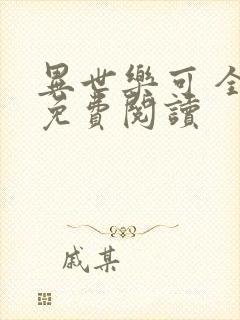 異世樂可 全
免費閱讀
戚某